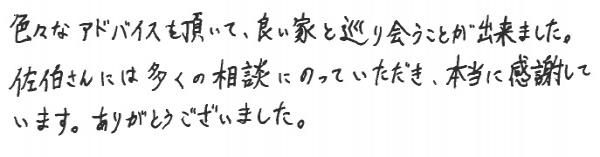 色々なアドバイスも頂いて、良い家と巡り会うことが出来ました。
佐伯さんには多くの相談にのっていただき、本当に感謝して
います。ありがとうございました。